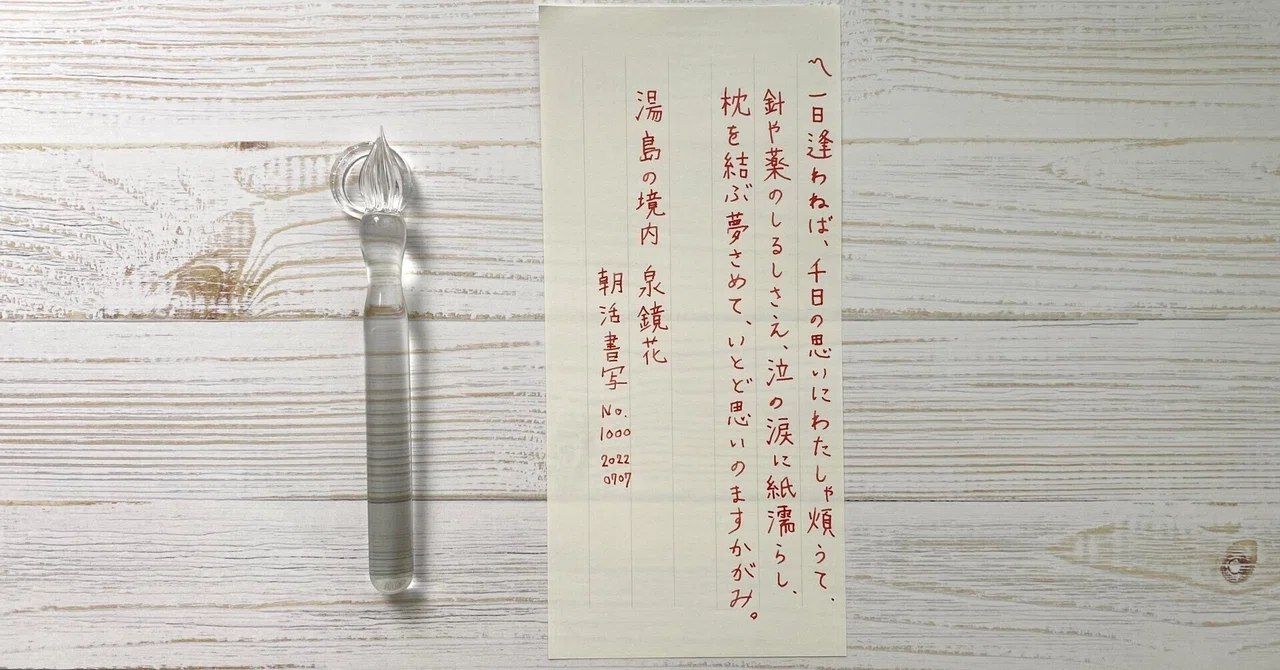 〽一日逢わねば、千日の思いにわたしゃ煩うて、
針や薬のしるしさえ、泣の涙に紙濡らし、
枕を結ぶ夢さめて、いとど思いのますかがみ。
湯島の境内 泉鏡花
朝活書写 No.1000 20220707